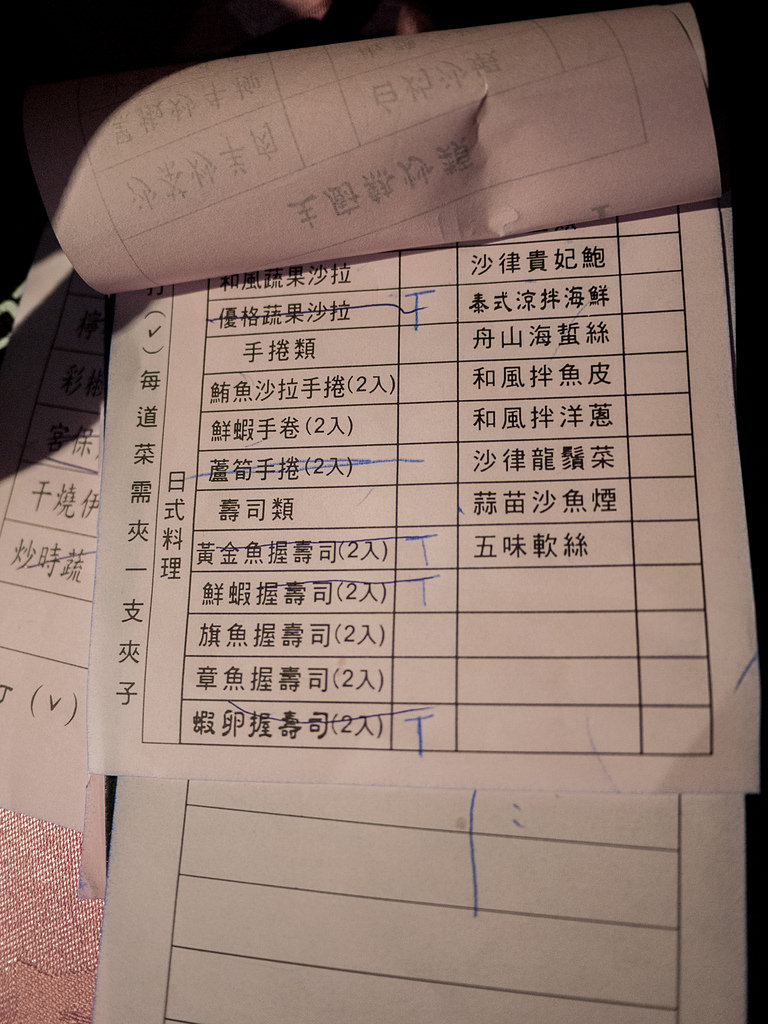 和風蔬果沙拉
優格蔬果沙拉 T
手捲類
鮪魚沙拉手捲(2入)
鮮蝦手卷(2入)
蘆筍手捲(2入)
壽司類
黃金魚握壽司(2入) T
鮮蝦握壽司(2入) T
旗魚握壽司(2入)
章魚握壽司(2入)
蝦卵握壽司(2入) T
沙律貴妃鮑
泰式涼拌海鮮
舟山海蜇絲
和風拌魚皮
和風拌洋蔥
沙律龍鬚菜
蒜苗沙魚煙
五味軟絲
日式料理
打(✓)每道菜需夾一支夾子
干燒伊
炒時蔬
(✓)